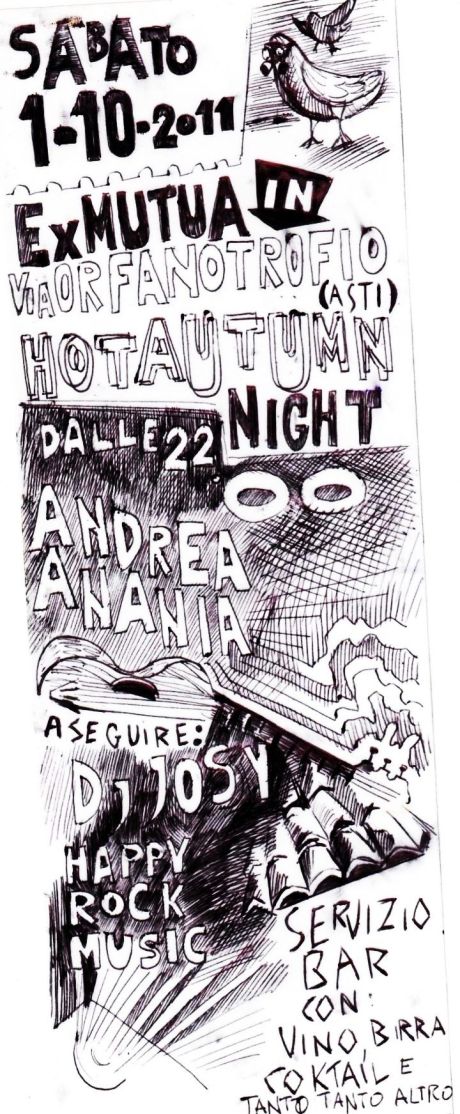 SABATO
1-10-2011
ExMUTUA IN
VIA ORFANOTROFIO
(ASTI)
HOT AUTUMN
NIGHT
DALLE 22
ANDREA
ANANIA
A SEGUIRE:
Dj JOSY
HAPPY
ROCK
MUSIC
SERVIZIO
BAR
CON:
VINO, BIRRA
COKTAIL E
TANTO TANTO ALTRO